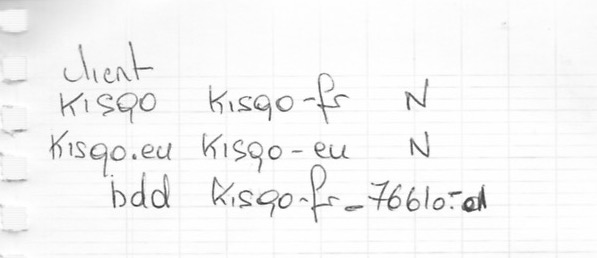 client
KISQO Kisqo-fr N
Kisqo.eu Kisqo-eu N
bdd Kisqo-fr_7661o